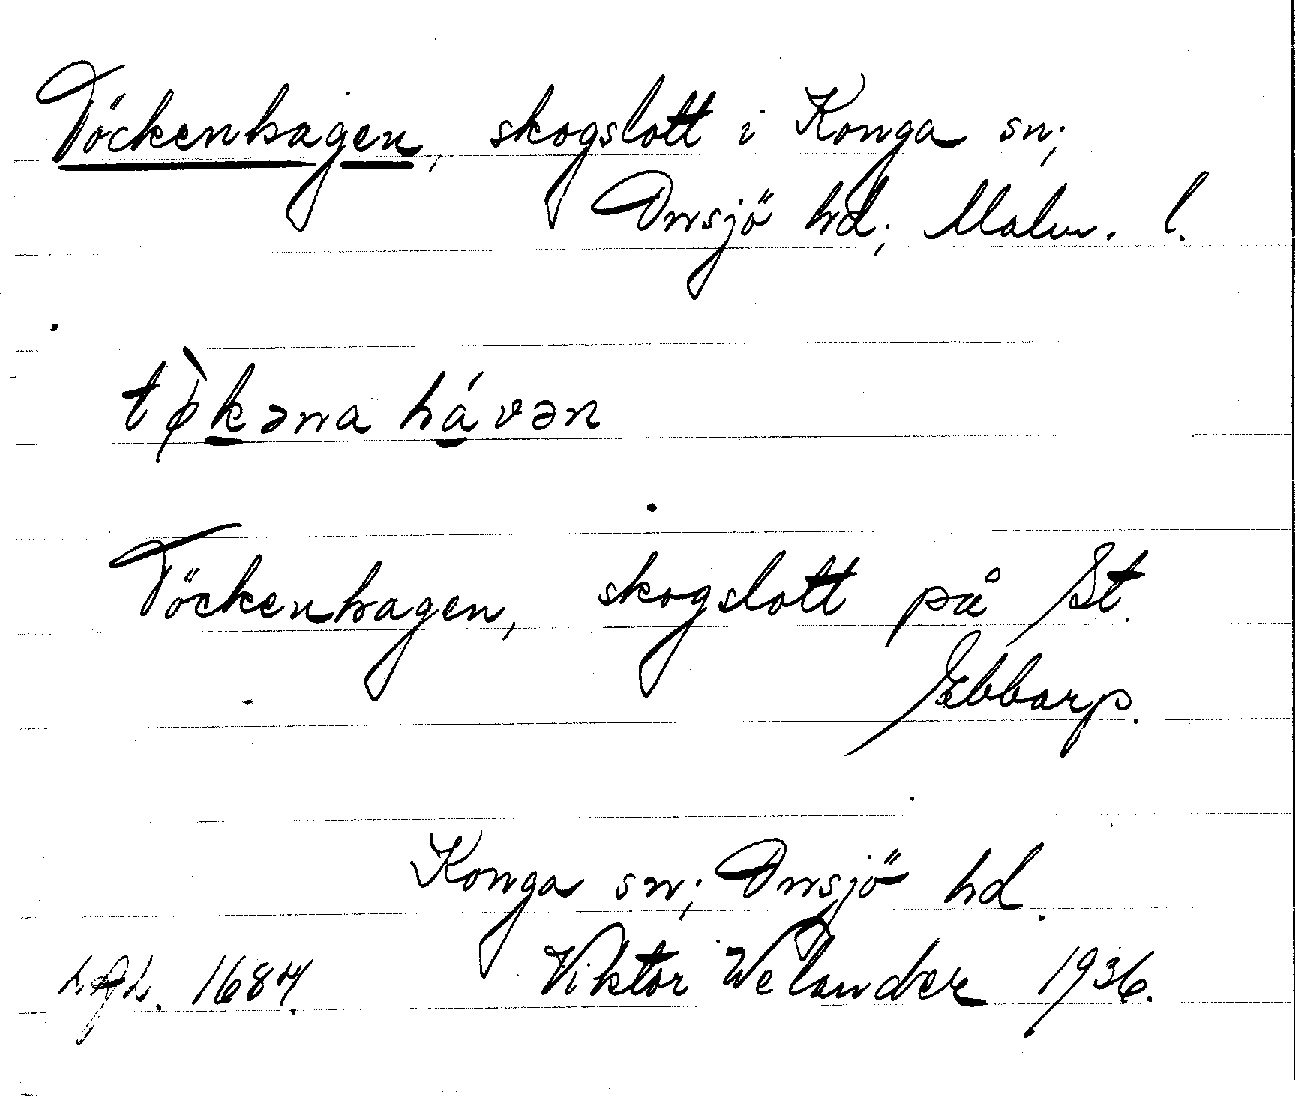 Töckenhagen, skogslott i Konga sn;
Onsjö hd; Malm. l.
tø̀kəna hávən
Töckenhagen, skogslott på St.
Ebbarp.
Konga sn; Onsjö hd.
1684. Viktor Welander 1936.